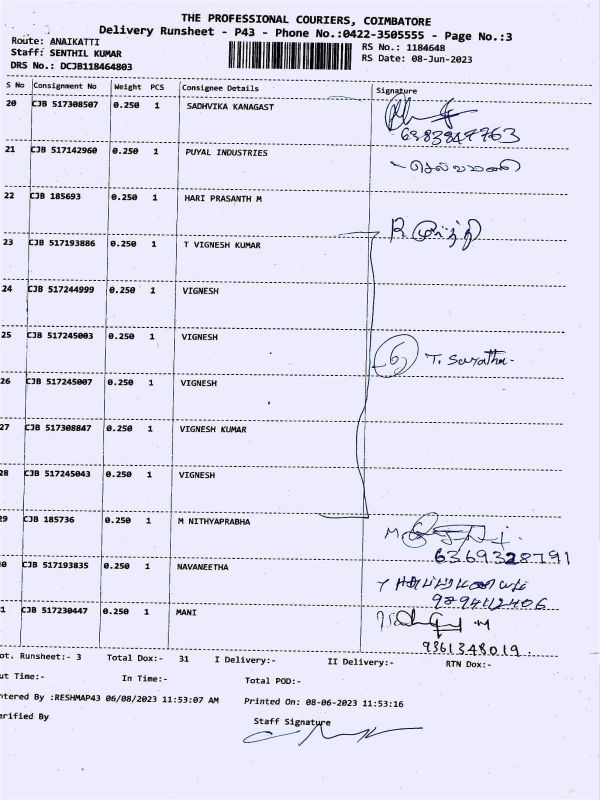 THE PROFESSIONAL COURIERS, COIMBATORE
Delivery Runsheet - P43 - Phone No.:0422-3505555 - Page No.:3
Route: ANAIKATTI
RS No.: 1184648
Staff: SENTHIL KUMAR
RS Date: 08-Jun-2023
DRS No.: DCJB118464803
S No Consignment No Weight PCS Consignee Details Signature
20 CJB 517308507 0.250 1 SADHVIKA KANAGAST
6383847763
21 CJB 517142960 0.250 1 PUYAL INDUSTRIES
22 CJB 185693 0.250 1 HARI PRASANTH M
23 CJB 517193886 0.250 1 T VIGNESH KUMAR
24 CJB 517244999 0.250 1 VIGNESH
25 CJB 517245003 0.250 1 VIGNESH
6
26 CJB 517245007 0.250 1 VIGNESH
27 CJB 517308847 0.250 1 VIGNESH KUMAR
28 CJB 517245043 0.250 1 VIGNESH
29 CJB 185736 0.250 1 M NITHYAPRABHA
6369328791
0 CJB 517193835 0.250 1 NAVANEETHA
9894112406
1 CJB 517230447 0.250 1 MANI
9361348019.
ot. Runsheet:- 3 Total Dox:- 31 I Delivery:- II Delivery:- RTN Dox:-
ut Time:- In Time:- Total POD:-
ntered By :RESHMAP43 06/08/2023 11:53:07 AM Printed On: 08-06-2023 11:53:16
erified By
Staff Signature